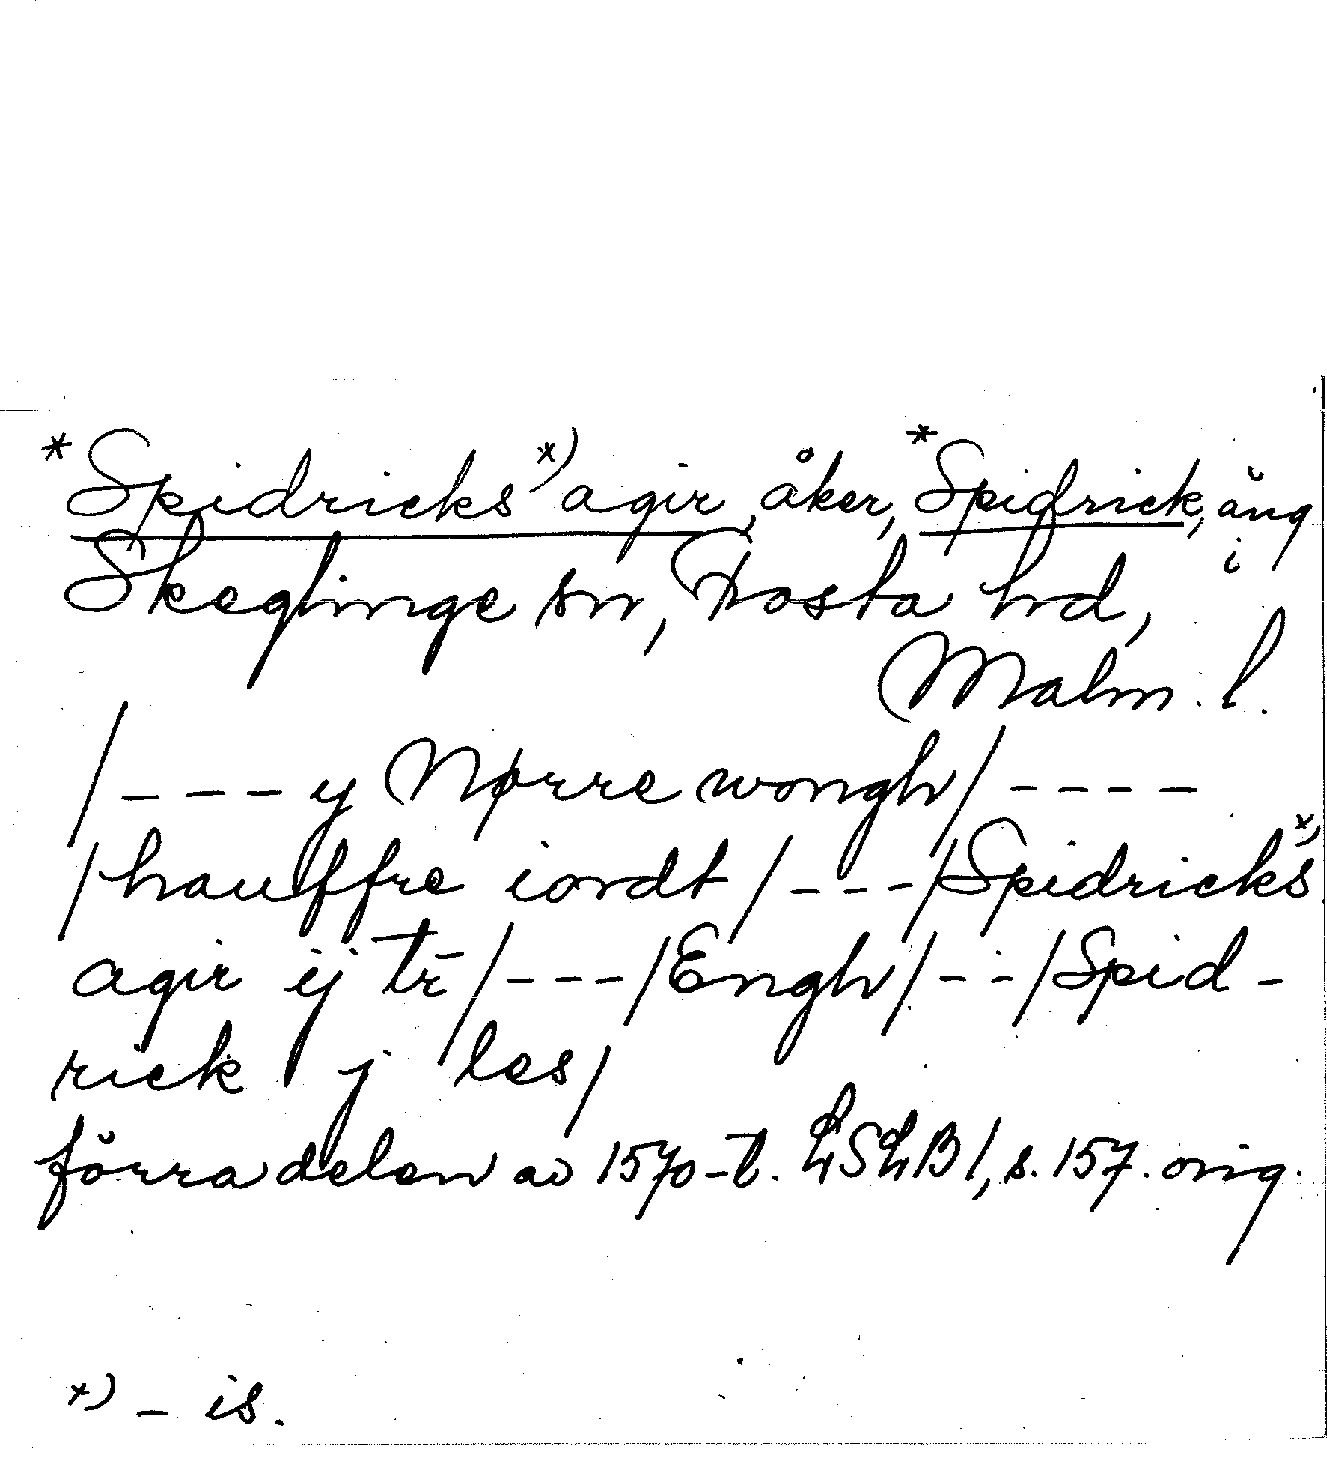 *Spidricks x) agir, åker, *Spidrick, äng i
Skeglinge sn, Frosta hd,
Malm. l.
/---y Nørre wongh/----
/hauffre iordt/---/Spidricks x)
agir ij tr̄/---/Engh/--/Spid-
rick j les/
förra delen av 1570-t. LSLB1, s. 157. orig.
x) - is.